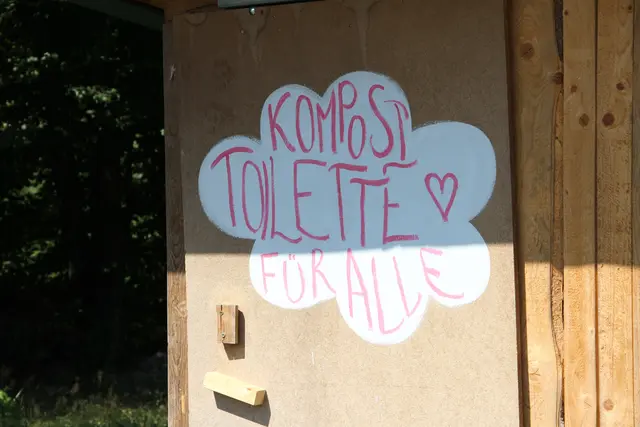 KOMPOST
TOILETTE ♡
FÜR ALLE